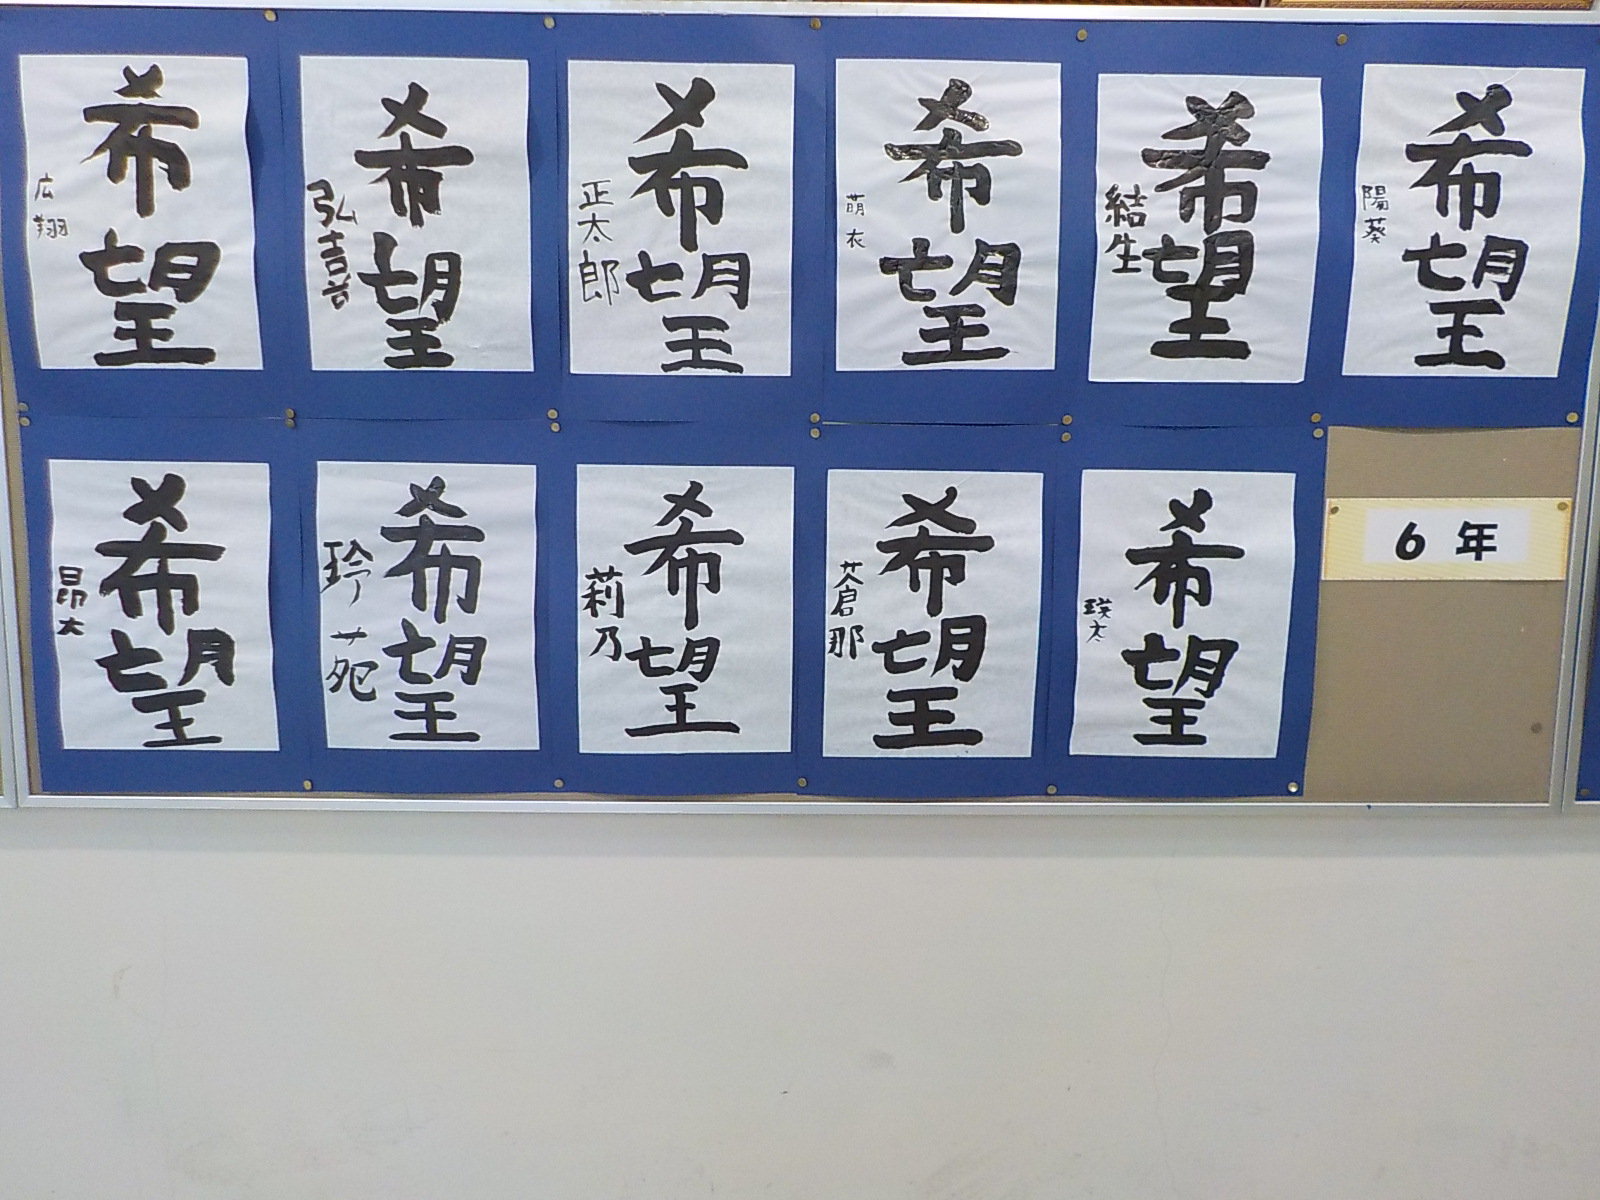 希望
広翔
希望
弘喜
希望
正太郎
希望
萌衣
希望
結生
希望
陽葵
希望
昴大
希望
玲菀
希望
莉乃
希望
蒼那
希望
瑛太
6年